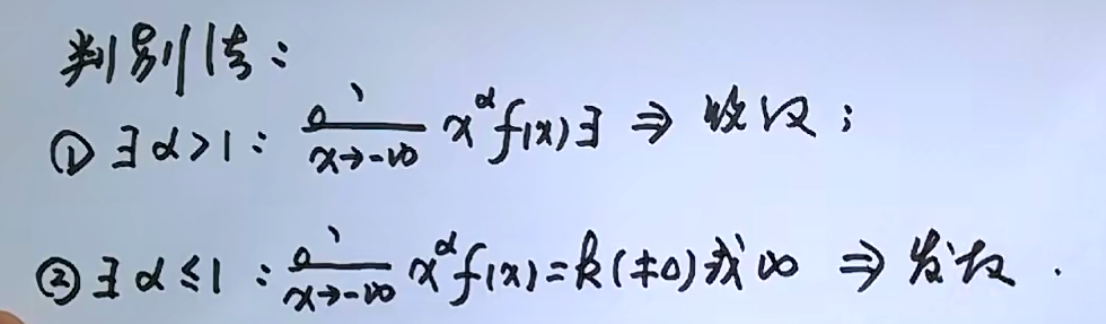 判别法：
① ∃ α>1 : lim x→-∞ x^α f(x) ∃ ⇒ 收敛；
② ∃ α≤1 : lim x→-∞ x^α f(x)=k(≠0)或∞ ⇒ 发散.